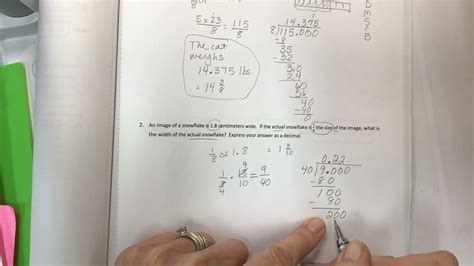 5 x 23 = 115
8 8
The cat
weighs
14.375 lbs.
= 14 3/8
14.375
8)115.000
-8
35
-32
3.0
2.4
60
56
40
-40
0
D
M
S
B
2. An image of a snowflake is 1.8 centimeters wide. If the actual snowflake is 1/8 the size of the image, what is
the width of the actual snowflake? Express your answer as a decimal.
1/8 of 1.8 = 1 8/10
1/8 · 18/10 = 9/40
9
4
0.22
40)9.000
-80
100
- 80
200